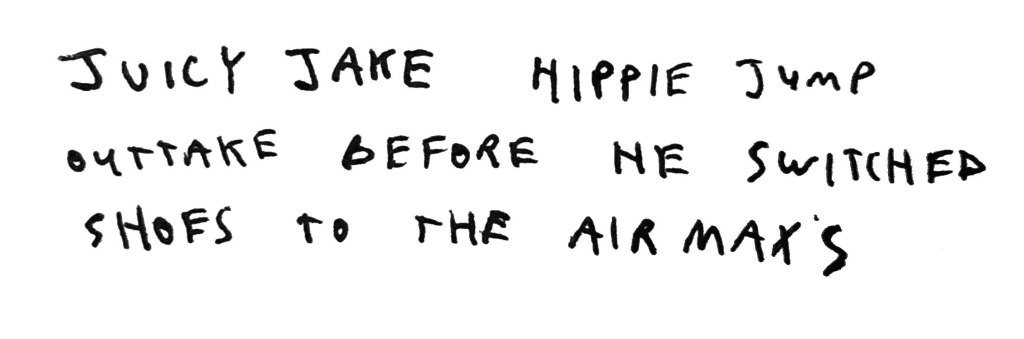 JUICY JAKE HIPPIE JUMP
OUTTAKE BEFORE HE SWITCHED
SHOES TO THE AIR MAX'S